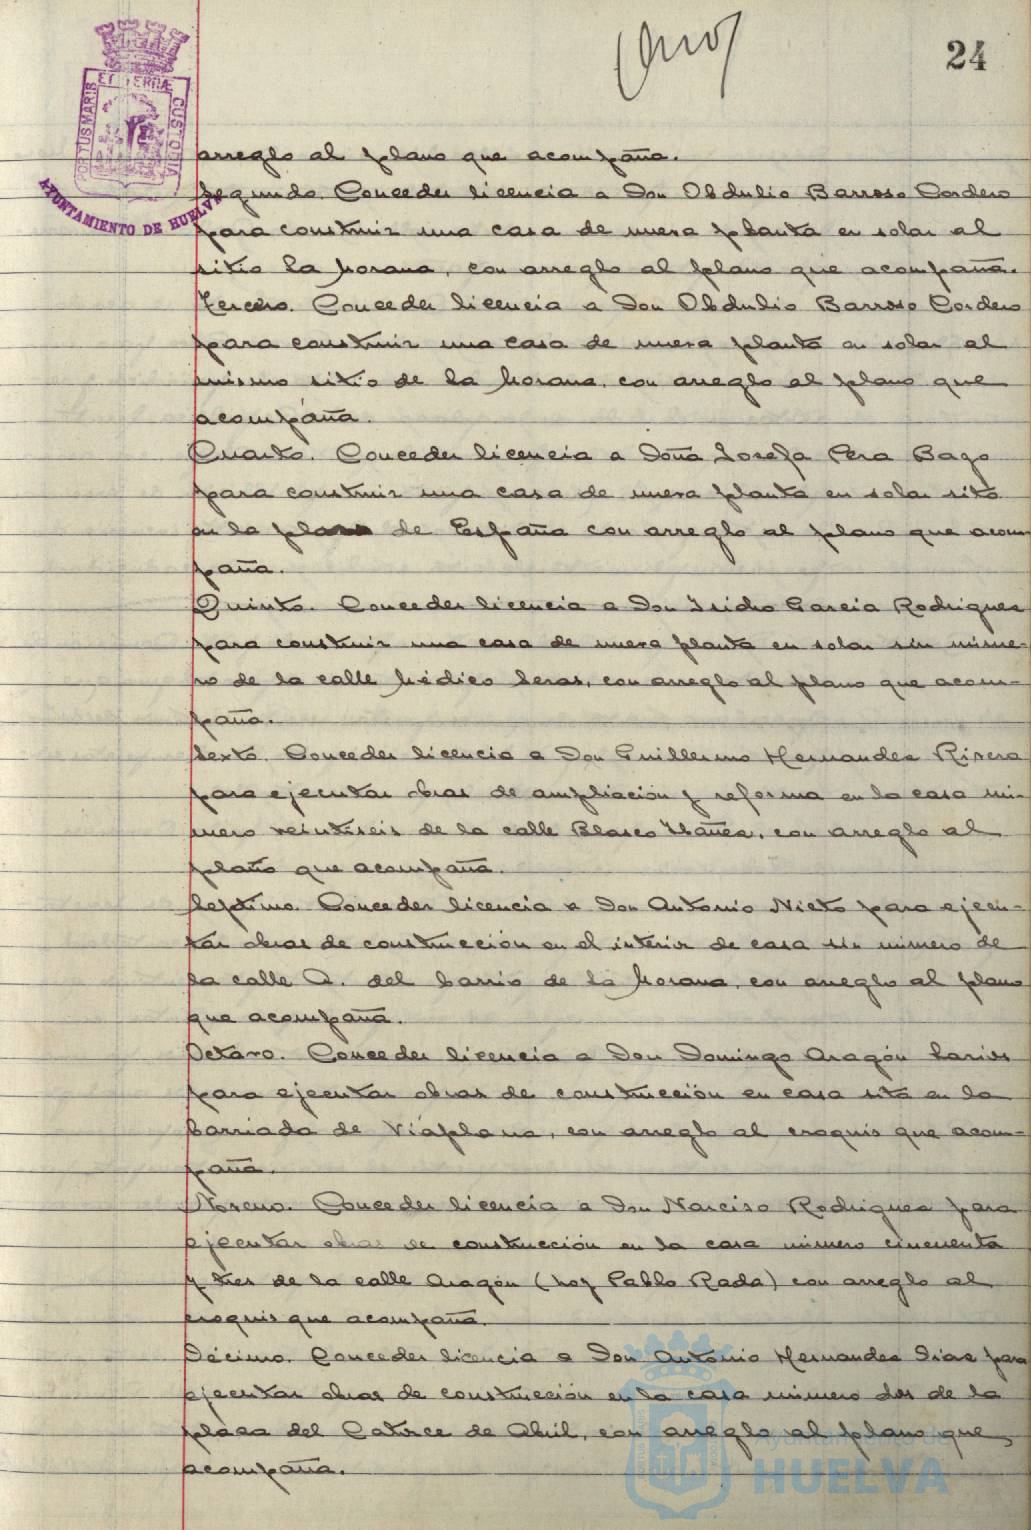 24
PORTUS MARIS ET TERRÆ CUSTODIA
AYUNTAMIENTO DE HUELVA
arreglo al plano que acompaña.
Segundo. Conceder licencia a Don Obdulio Barroso Cordero
para construir una casa de nueva planta en solar al
sitio La Morana, con arreglo al plano que acompaña.
Tercero. Conceder licencia a Don Obdulio Barroso Cordero
para construir una casa de nueva planta en solar al
mismo sitio de la Morana, con arreglo al plano que
acompaña.
Cuarto. Conceder licencia a Doña Josefa Pera Bago
para construir una casa de nueva planta en solar sito
en la plaza de España con arreglo al plano que acom
paña.
Quinto. Conceder licencia a Don Isidro Garcia Rodriguez
para construir una casa de nueva planta en solar sin núme-
ro de la calle Médico Seras, con arreglo al plano que acom-
paña.
Sexto. Conceder licencia a Don Guillermo Hernandez Rivera
para ejecutar obras de ampliación y reforma en la casa nú-
mero veintiseis de la calle Blasco Ibáñez, con arreglo al
plano que acompaña.
Septimo. Conceder licencia a Don Antonio Nieto para ejecu-
tar obras de construcción en el interior de casa sin número de
la calle A. del barrio de la Morana, con arreglo al plano
que acompaña.
Octavo. Conceder licencia a Don Domingo Aragón Larios
para ejecutar obras de construcción en casa sita en la
barriada de Viaplana, con arreglo al croquis que acom-
paña.
Noveno. Conceder licencia a Don Narciso Rodriguez para
ejecutar obras de construcción en la casa número cincuenta
y tres de la calle Aragón (hoy Pablo Rada) con arreglo al
croquis que acompaña.
Décimo. Conceder licencia a Don Antonio Hernandez Diaz para
ejecutar obras de construcción en la casa número dos de la
plaza del Catorce de Abril, con arreglo al plano que
acompaña.
Ayuntamiento de
HUELVA